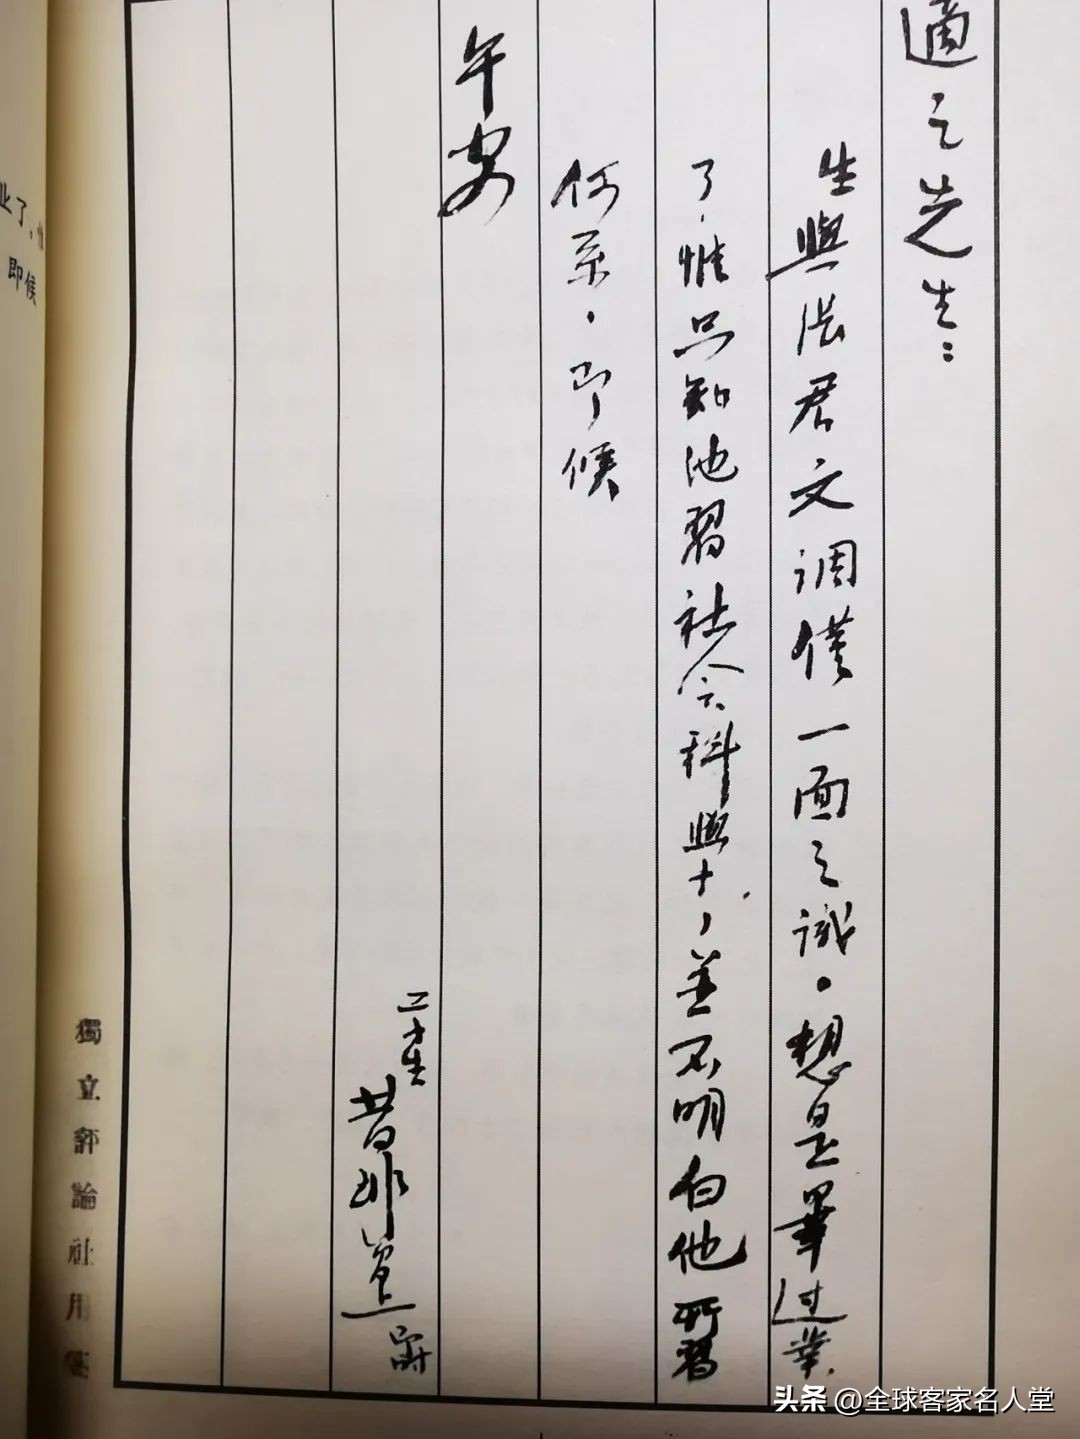 適之先生：
生與張君文調僅一面之識。想是畢過業
了，惟只知他習社会科與十，並不明白他所習
何系，即候
午安
業了，惟
即候
獨立評論社用箋
头条 @全球客家名人堂